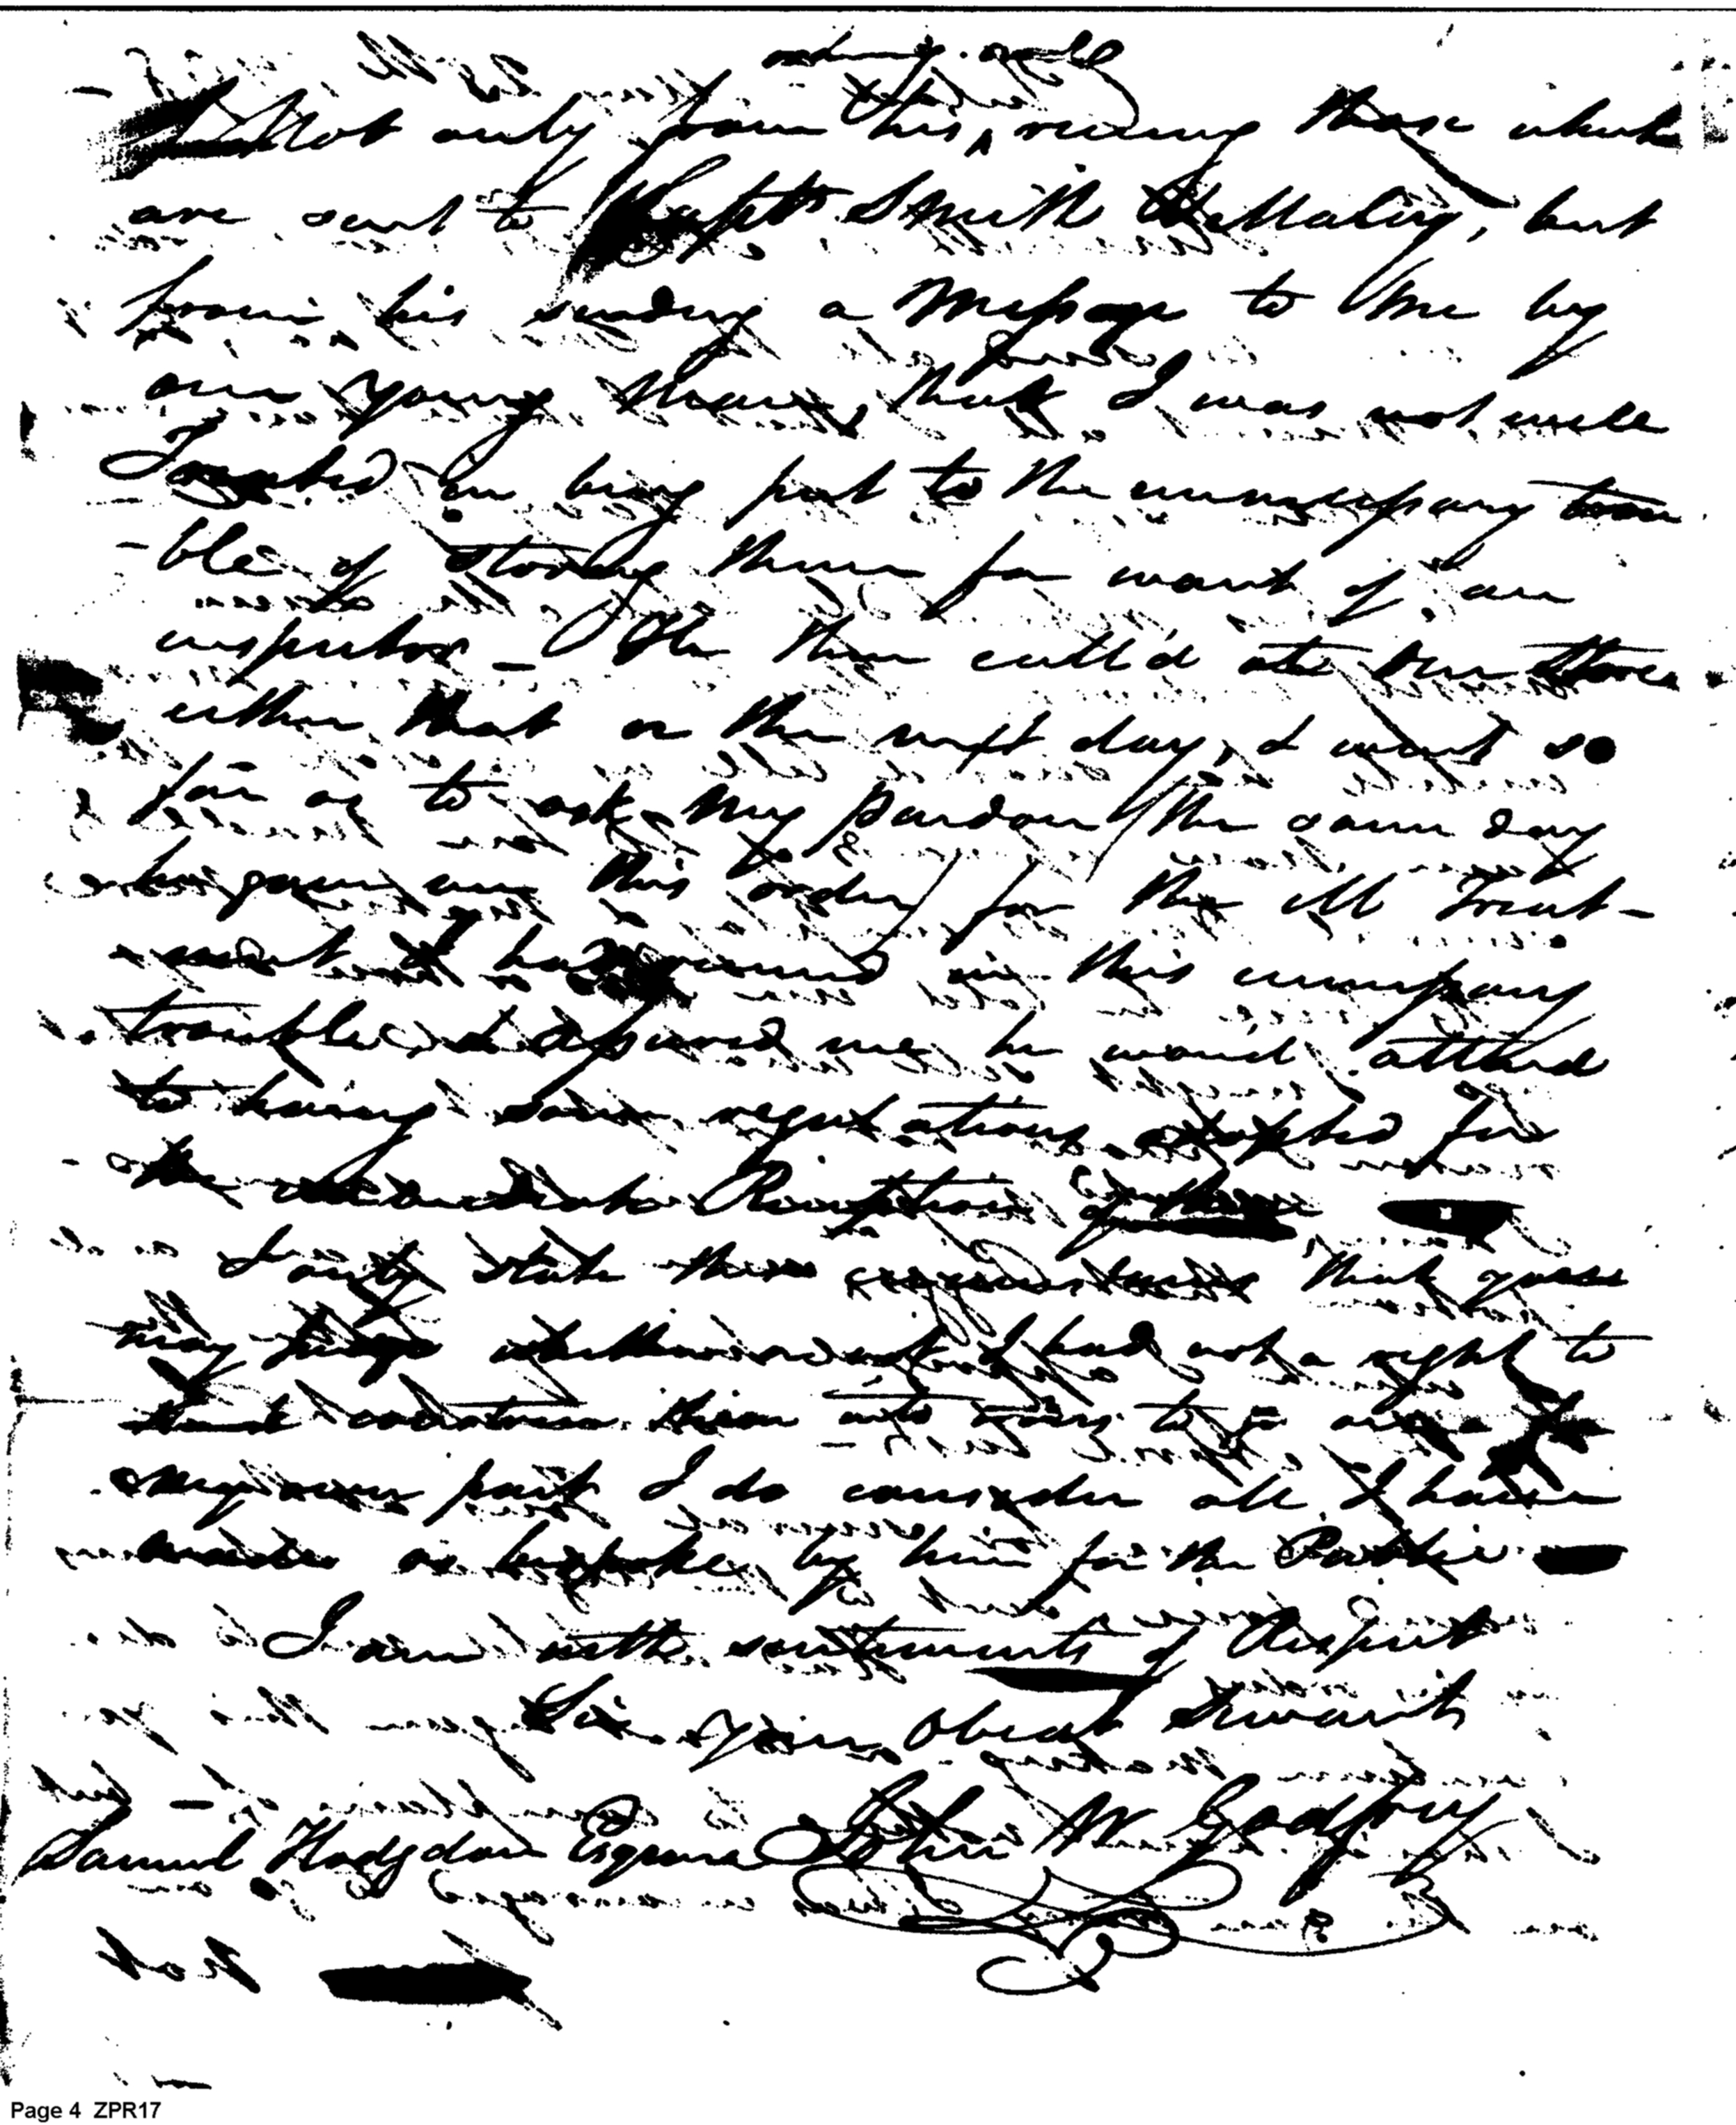 Not only from his, receiving those which
are sent to Captn Smith & Maling, but
from his sending a Message to me by
our young Man, that I was not well
Treated in being put to the unnecessary trou
-ble of storing them for want of an
inspector - He then call'd at our Store
either that or the next day, & went so
far as to ask my pardon the same day
he gave me this order, for the ill Treat-
ment I had received in this unnecessary
trouble & assured me he would attend
to having some regulations adopted for
the immediate Reception of them
I only state these circumstances that you
may judge whether or not I had not a right to
construe them into
my own part I do consider all I have
made as bespoke by him for the Public
I am with sentiments of Respect
Sir your Obedt Servant
John W. Godfrey
Samuel Hodgdon Esquire
Page 4 ZPR17